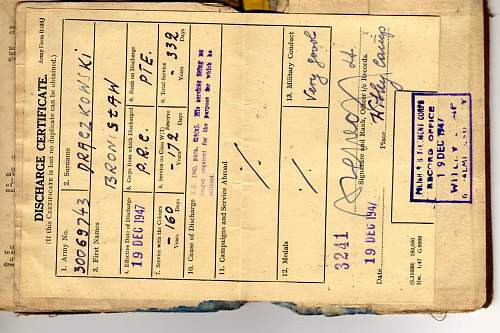 Army Form B 183
DISCHARGE CERTIFICATE.
(If this CERTIFICATE is lost no duplicate can be obtained.)
1. Army No. 2. Surname
30069743 DRĄCZKOWSKI
3. First Names
BRONISŁAW
4. Effective Date of Discharge 5. Corps from which Discharged 6. Rank on Discharge
19 DEC 1947 P.R.C. PTE.
7. Service with the Colours 8. Service on Class W(T) Reserve 9. Total Service
- 160 - 172 - 332
Years Days Years Days Years Days
10. Cause of Discharge
His services being no
longer required for the purpose for which he
enlisted.
11. Campaigns and Service Abroad
12. Medals 13. Military Conduct
Very good
3241
Signature and Rank, Officer i/c Records.
19 DEC 1947
Date
Place Witley Camp
POLISH RESETTLEMENT CORPS
RECORD OFFICE
19 DEC 1947
WITLEY CAMP
GODALMING, SURREY